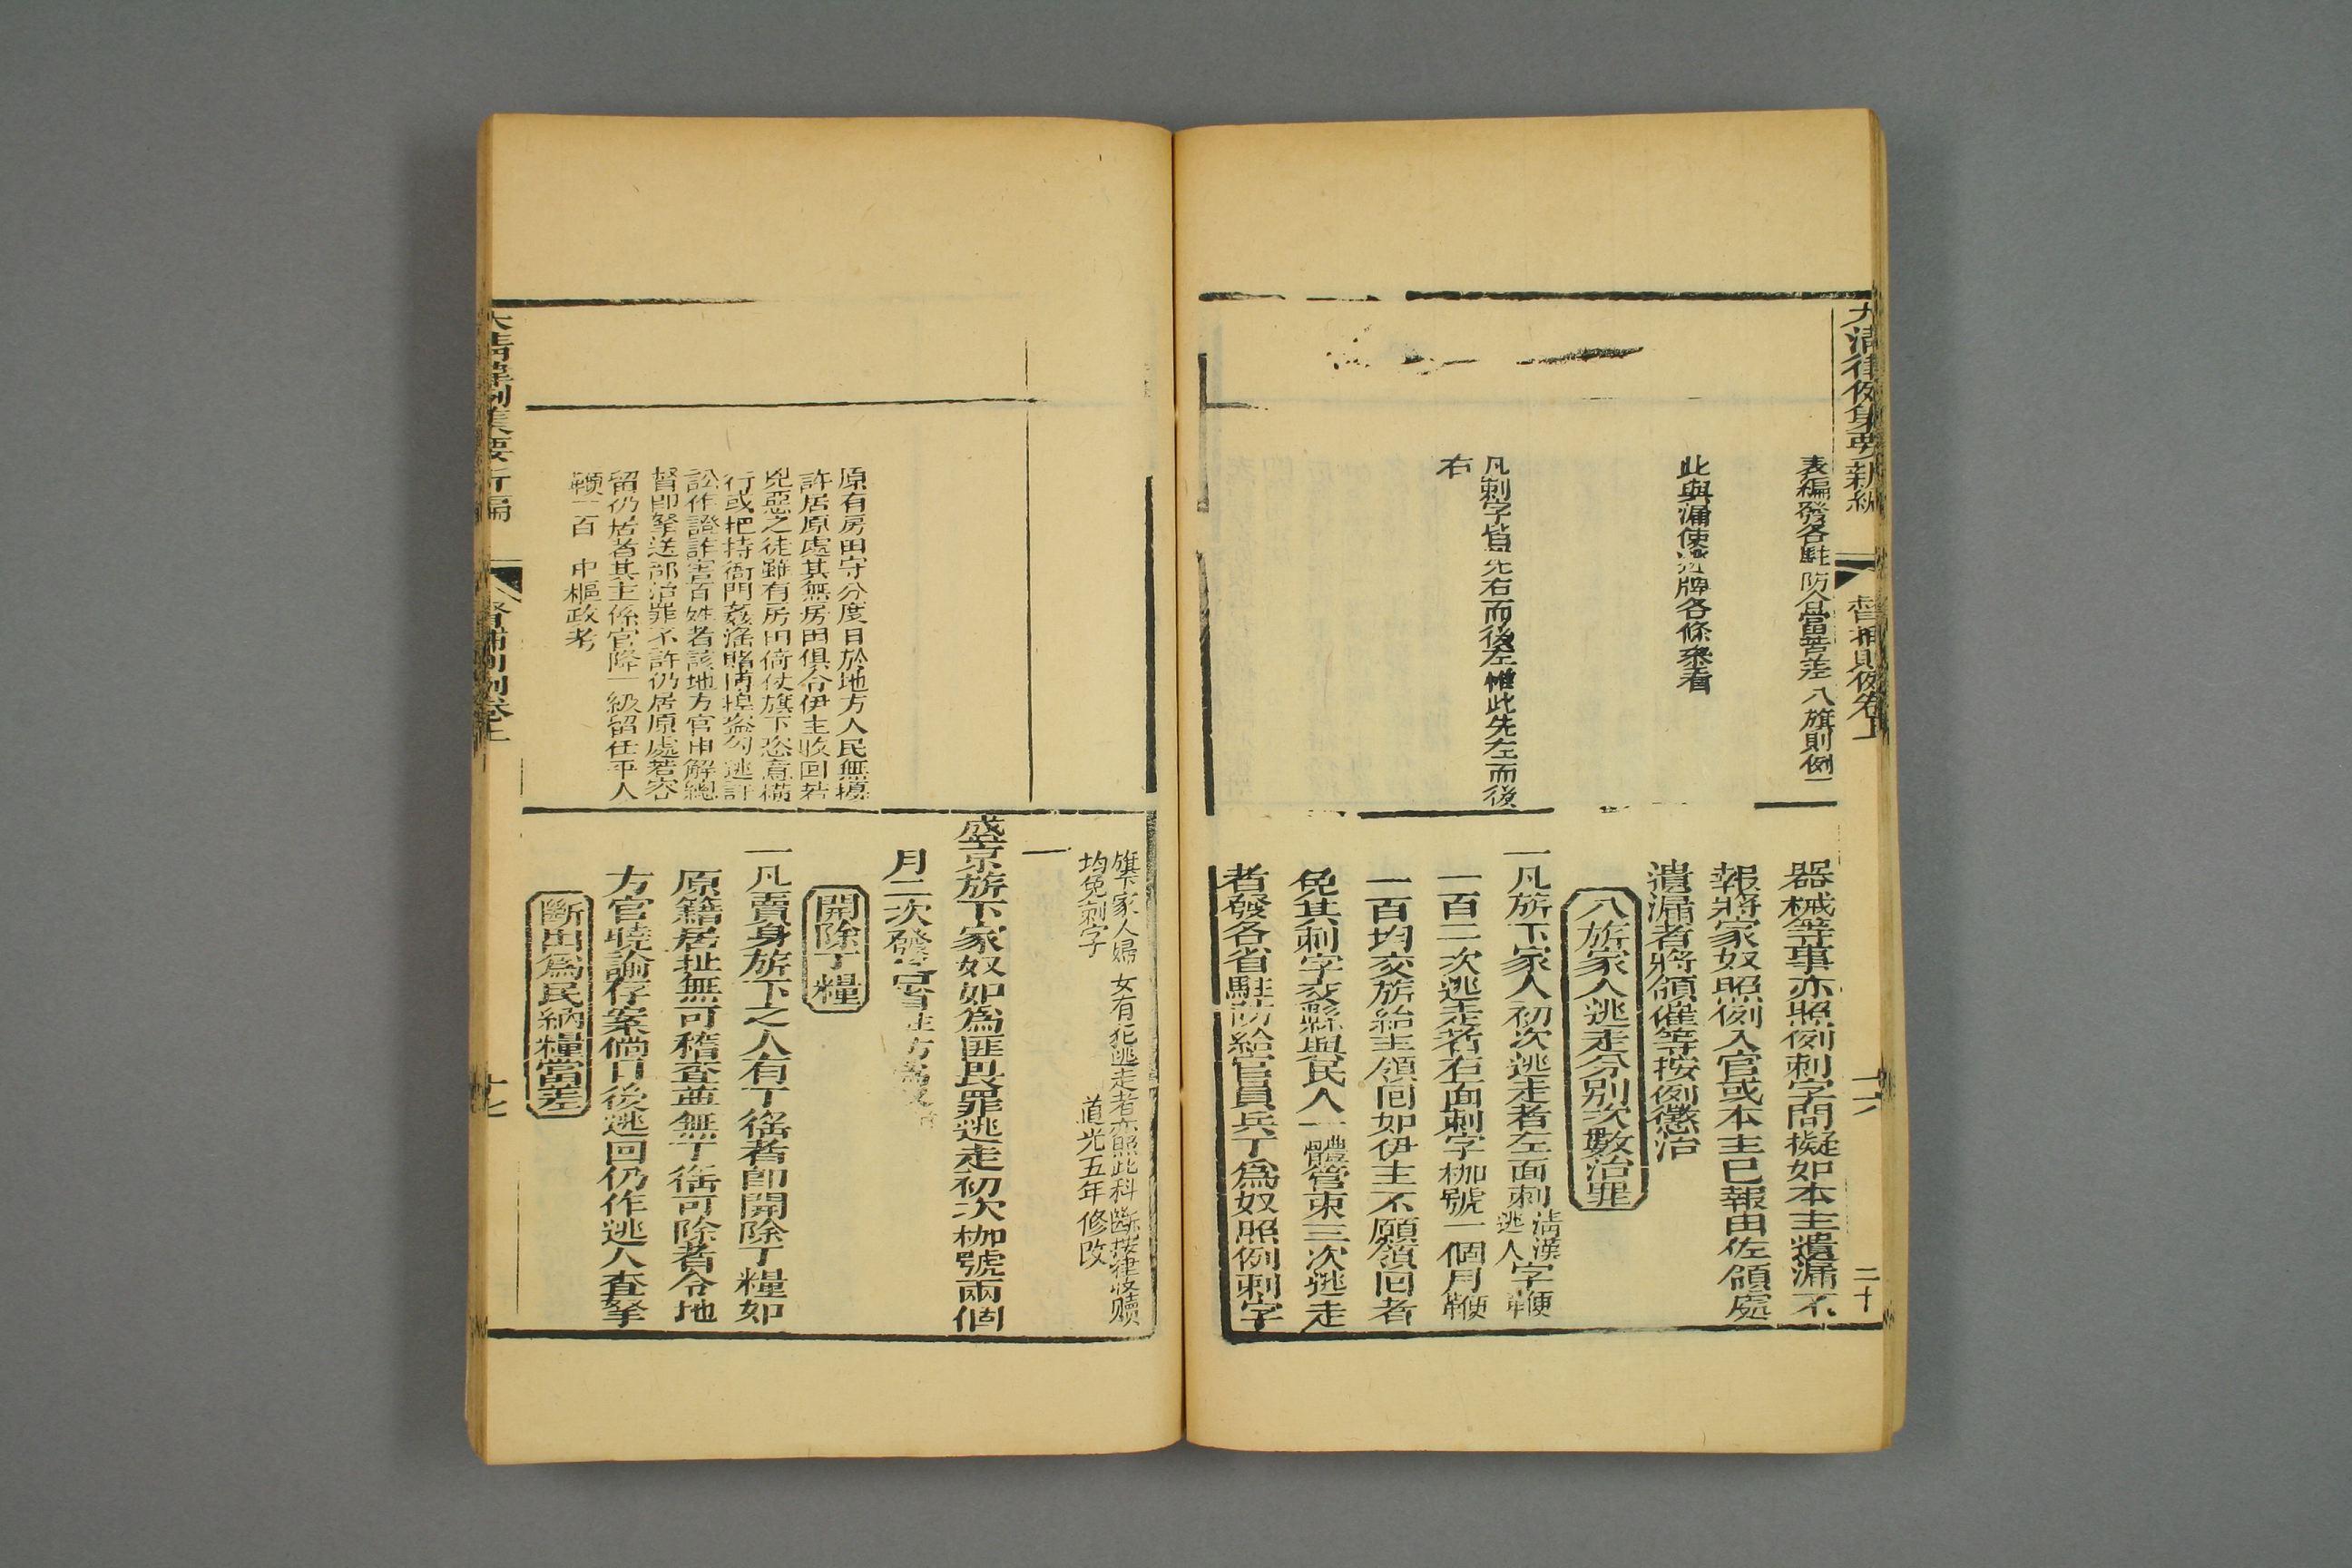 大清律例彙要新編
督捕則例卷上
十六
二十
表編發各駐防合當苦差八旗則例一
此與漏使逃牌各條叅看
凡刺字皆先右而後左惟此先左而後
右
器械等事亦照例刺字問擬如本主遺漏不
報將家奴照例入官或本主已報由佐領處
遺漏者將領催等按例懲治
八旂家人逃走分別次數治罪
一凡旂下家人初次逃走者左面刺清漢字逃人鞭
一百二次逃走者右面刺字枷號一個月鞭
一百均交旂給主領囘如伊主不願領囘者
免其刺字交縣與民人一體管束三次逃走
者發各省駐防給官員兵丁爲奴照例刺字
旗下家人婦女有犯逃走者亦照此科斷按律收贖
均免刺字 道光五年修改
一
盛京旂下家奴如爲匪畏罪逃走初次枷號兩個
月二次發各省駐防爲奴
原有房田守分度日於地方人民無擾
許居原處其無房田俱令伊主收回若
兇惡之徒雖有房田倚仗旗下恣意橫
行或把持衙門姦淫賭博揘盜勾逃訐
訟作證詐害百姓者該地方官申解總
督卽拏送部治罪不許仍居原處若容
留仍居者其主係官降一級留任平人
鞭一百 中樞政考
開除丁糧
一凡賣身旂下之人有丁徭者卽開除丁糧如
原籍居址無可稽查並無丁徭可除者令地
方官曉諭存案倘日後逃回仍作逃人查拏
斷出爲民納糧當差
大清律例彙要新編
督捕則例卷上
十七